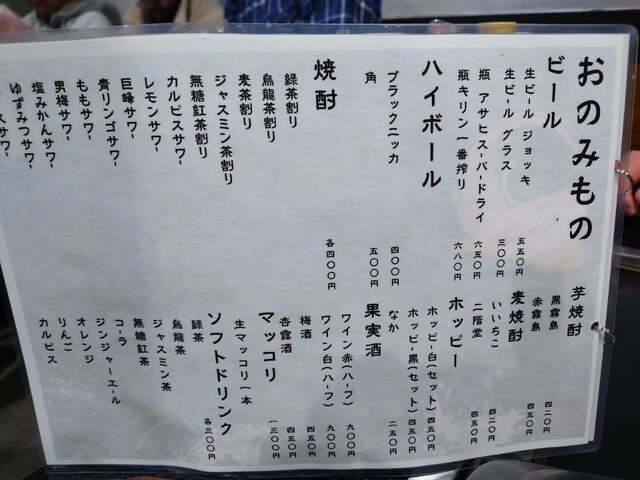 おのみもの
ビール
生ビール ジョッキ 五五〇円
生ビール グラス 三〇〇円
瓶 アサヒスーパードライ 六五〇円
瓶キリン一番搾り 六八〇円
ハイボール
ブラックニッカ 四〇〇円
角 五〇〇円
焼酎 各四〇〇円
緑茶割り
烏龍茶割り
麦茶割り
ジャスミン茶割り
無糖紅茶割り
カルピスサワー
レモンサワー
巨峰サワー
青リンゴサワー
ももサワー
男梅サワー
塩みかんサワー
ゆずみつサワー
芋焼酎
黒霧島 四二〇円
赤霧島 四五〇円
麦焼酎
いいちこ 四二〇円
二階堂 四五〇円
ホッピー
ホッピー白(セット) 四五〇円
ホッピー黒(セット) 四五〇円
なか 二五〇円
果実酒
ワイン赤(ハーフ) 九〇〇円
ワイン白(ハーフ) 九〇〇円
梅酒 四五〇円
杏露酒 四五〇円
マッコリ
生マッコリ一本 一三〇〇円
ソフトドリンク 各三〇〇円
緑茶
烏龍茶
ジャスミン茶
無糖紅茶
コーラ
ジンジャーエール
オレンジ
りんご
カルピス